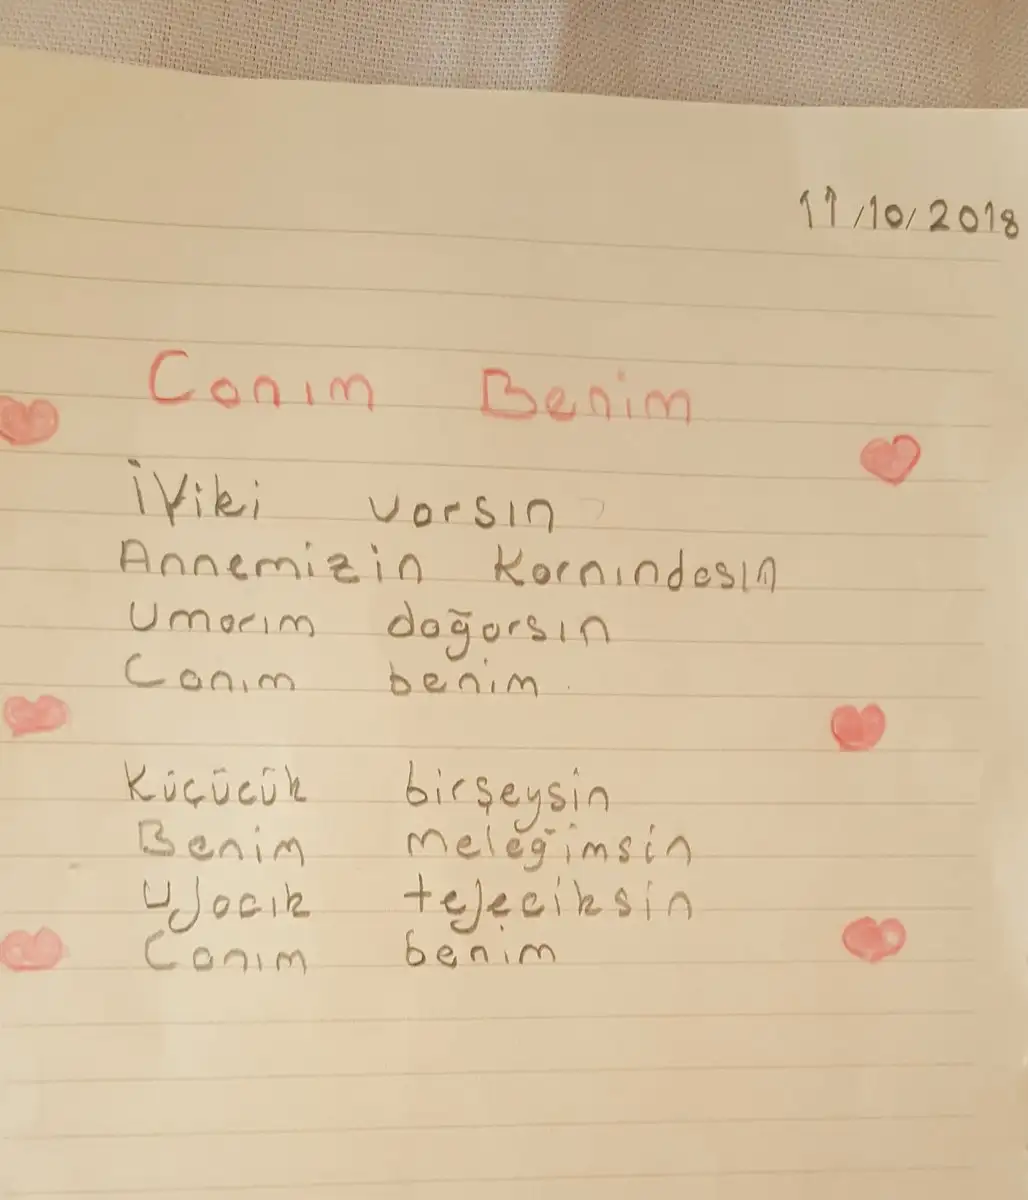 11/10/2018
Canım Benim
İyiki varsın
Annemizin karnındasın
Umarım doğarsın
Canım benim
Küçücük birşeysin
Benim meleğimsin
Ufacık tefeciksin
Canım benim